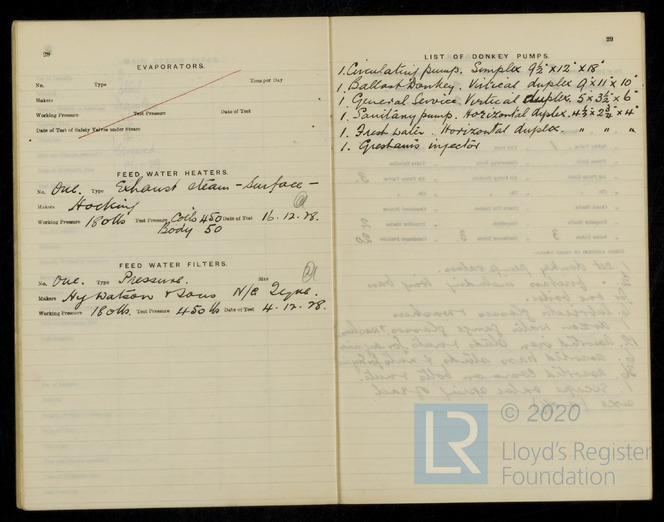 28
EVAPORATORS.
No. Type Tons per Day
Makers
Working Pressure Test Pressure Date of Test
Date of Test of Safety Valves under Steam
FEED WATER HEATERS.
No. One. Type Exhaust steam - Surface -
Makers Hocking
Working Pressure 180 lbs Test Pressure Coils 450 Date of Test 16.12.28.
Body 50
FEED WATER FILTERS.
No. One. Type Pressure. Size
Makers Hy Watson & Sons N/C Tyne.
Working Pressure 180 lbs. Test Pressure 450 lbs Date of Test 4.12.28.
29
LIST OF DONKEY PUMPS.
1. Circulating pump. Simplex 9½" x 12" x 18"
1. Ballast Donkey. Virtical duplex 9" x 11" x 10"
1. General Service. Vertical duplex. 5 x 3½" x 6"
1. Sanitary pump. Horizontal duplex. 4½" x 2¾" x 4"
1. Fresh water. Horizontal duplex. " " "
1. Gresham's injector
© 2020
LR
Lloyd's Register
Foundation